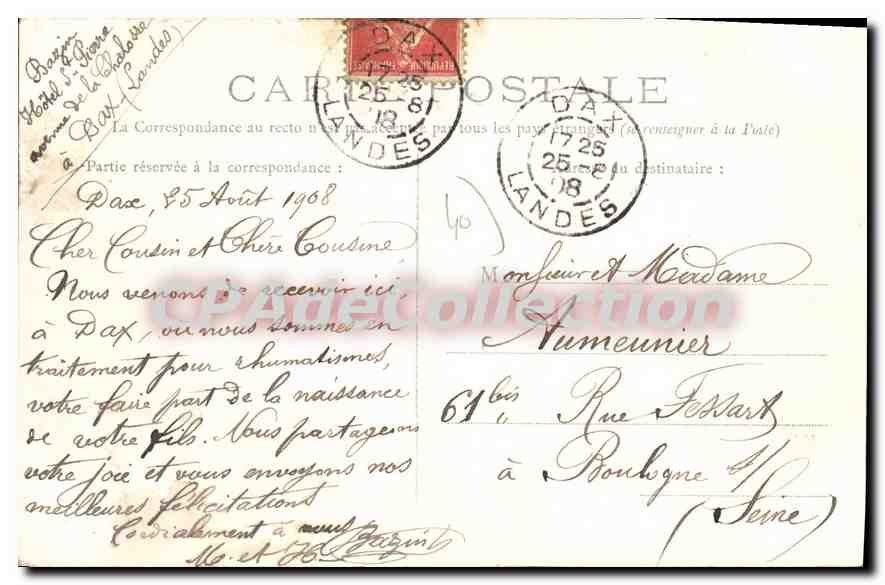 Bazin
Hôtel St Pierre
avenue de la Chalosse
à Dax (Landes)
RÉPUBLIQUE FRANÇAISE
CARTE POSTALE
DAX
17 25
25 - 8
08
LANDES
DAX
17 25
25 - 8
08
LANDES
La Correspondance au recto n'est pas acceptée par tous les pays étrangers (se renseigner à la Poste)
Partie réservée à la correspondance :
Adresse du destinataire :
Dax, 25 Août 1908
40
Cher Cousin et Chère Cousine
Nous venons de recevoir ici,
à Dax, où nous sommes en
traitement pour rhumatismes,
votre faire part de la naissance
de votre fils. Nous partageons
votre joie et vous envoyons nos
meilleures félicitations
Cordialement à vous
M. et H. Bazin
Monsieur et Madame
Aumeunier
61 bis Rue Fessart
à Boulogne s/
(Seine)
CPAdeCollection.com